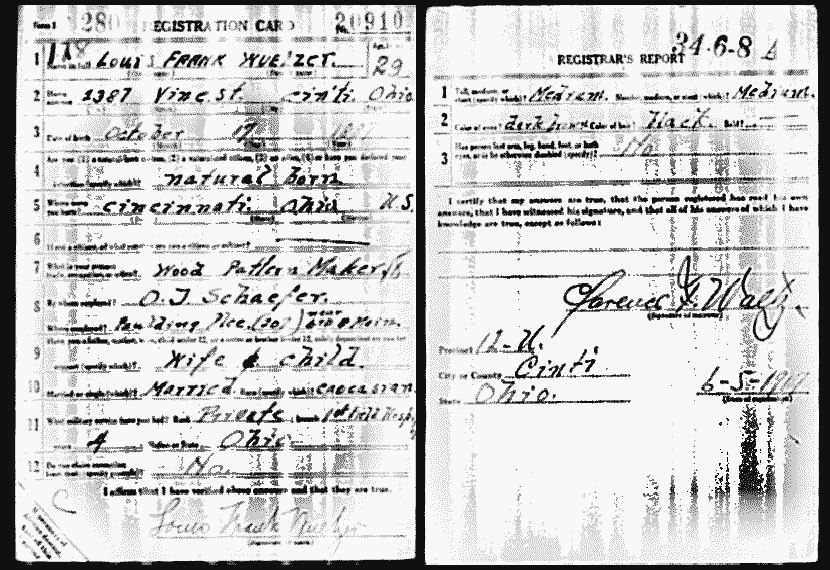 Form 1 280 REGISTRATION CARD No. 20910
1 Louis FRANK WUELZER. Age 29
2 2387 Vine st. cin'ti. Ohio
3 Date of birth October 17
4 Are you (1) a natural-born citizen, (2) a naturalized citizen, (3) an alien, (4) or have you declared your
intention (specify which)? natural born
5 Where were you born? cincinnati. Ohio U.S.
6 If not a citizen, of what country are you a citizen or subject?
7 What is your present trade, occupation, or office? Wood Pattern Maker
8 By whom employed? O. J Schaefer.
Where employed?
9 Have you a father, mother, wife, child under 12, or a sister or brother under 12, solely dependent on you for
support (specify which)? Wife & child.
10 Married or single (which)? Married. Race (specify which)? caucasian
11 What military service have you had? Rank Private ; branch 1st
years 4 Nation or State Ohio
12 Do you claim exemption from draft (specify grounds)? No.
I affirm that I have verified above answers and that they are true.
Louis Frank Wuelzer
(Signature or mark)
34-6-8 A
REGISTRAR'S REPORT
1 Tall, medium, or short (specify which)? Medium. Slender, medium, or stout (which)? Medium.
2 Color of eyes? dark brown Color of hair? Black Bald?
3 Has person lost arm, leg, hand, foot, or both eyes, or is he otherwise disabled (specify)? No
I certify that my answers are true, that the person registered has read his own
answers, that I have witnessed his signature, and that all of his answers of which I have
knowledge are true, except as follows:
Clarence F. Waltz.
(Signature of registrar)
Precinct 12-U.
City or County Cinti
State Ohio.
6-5-1917
(Date of registration)